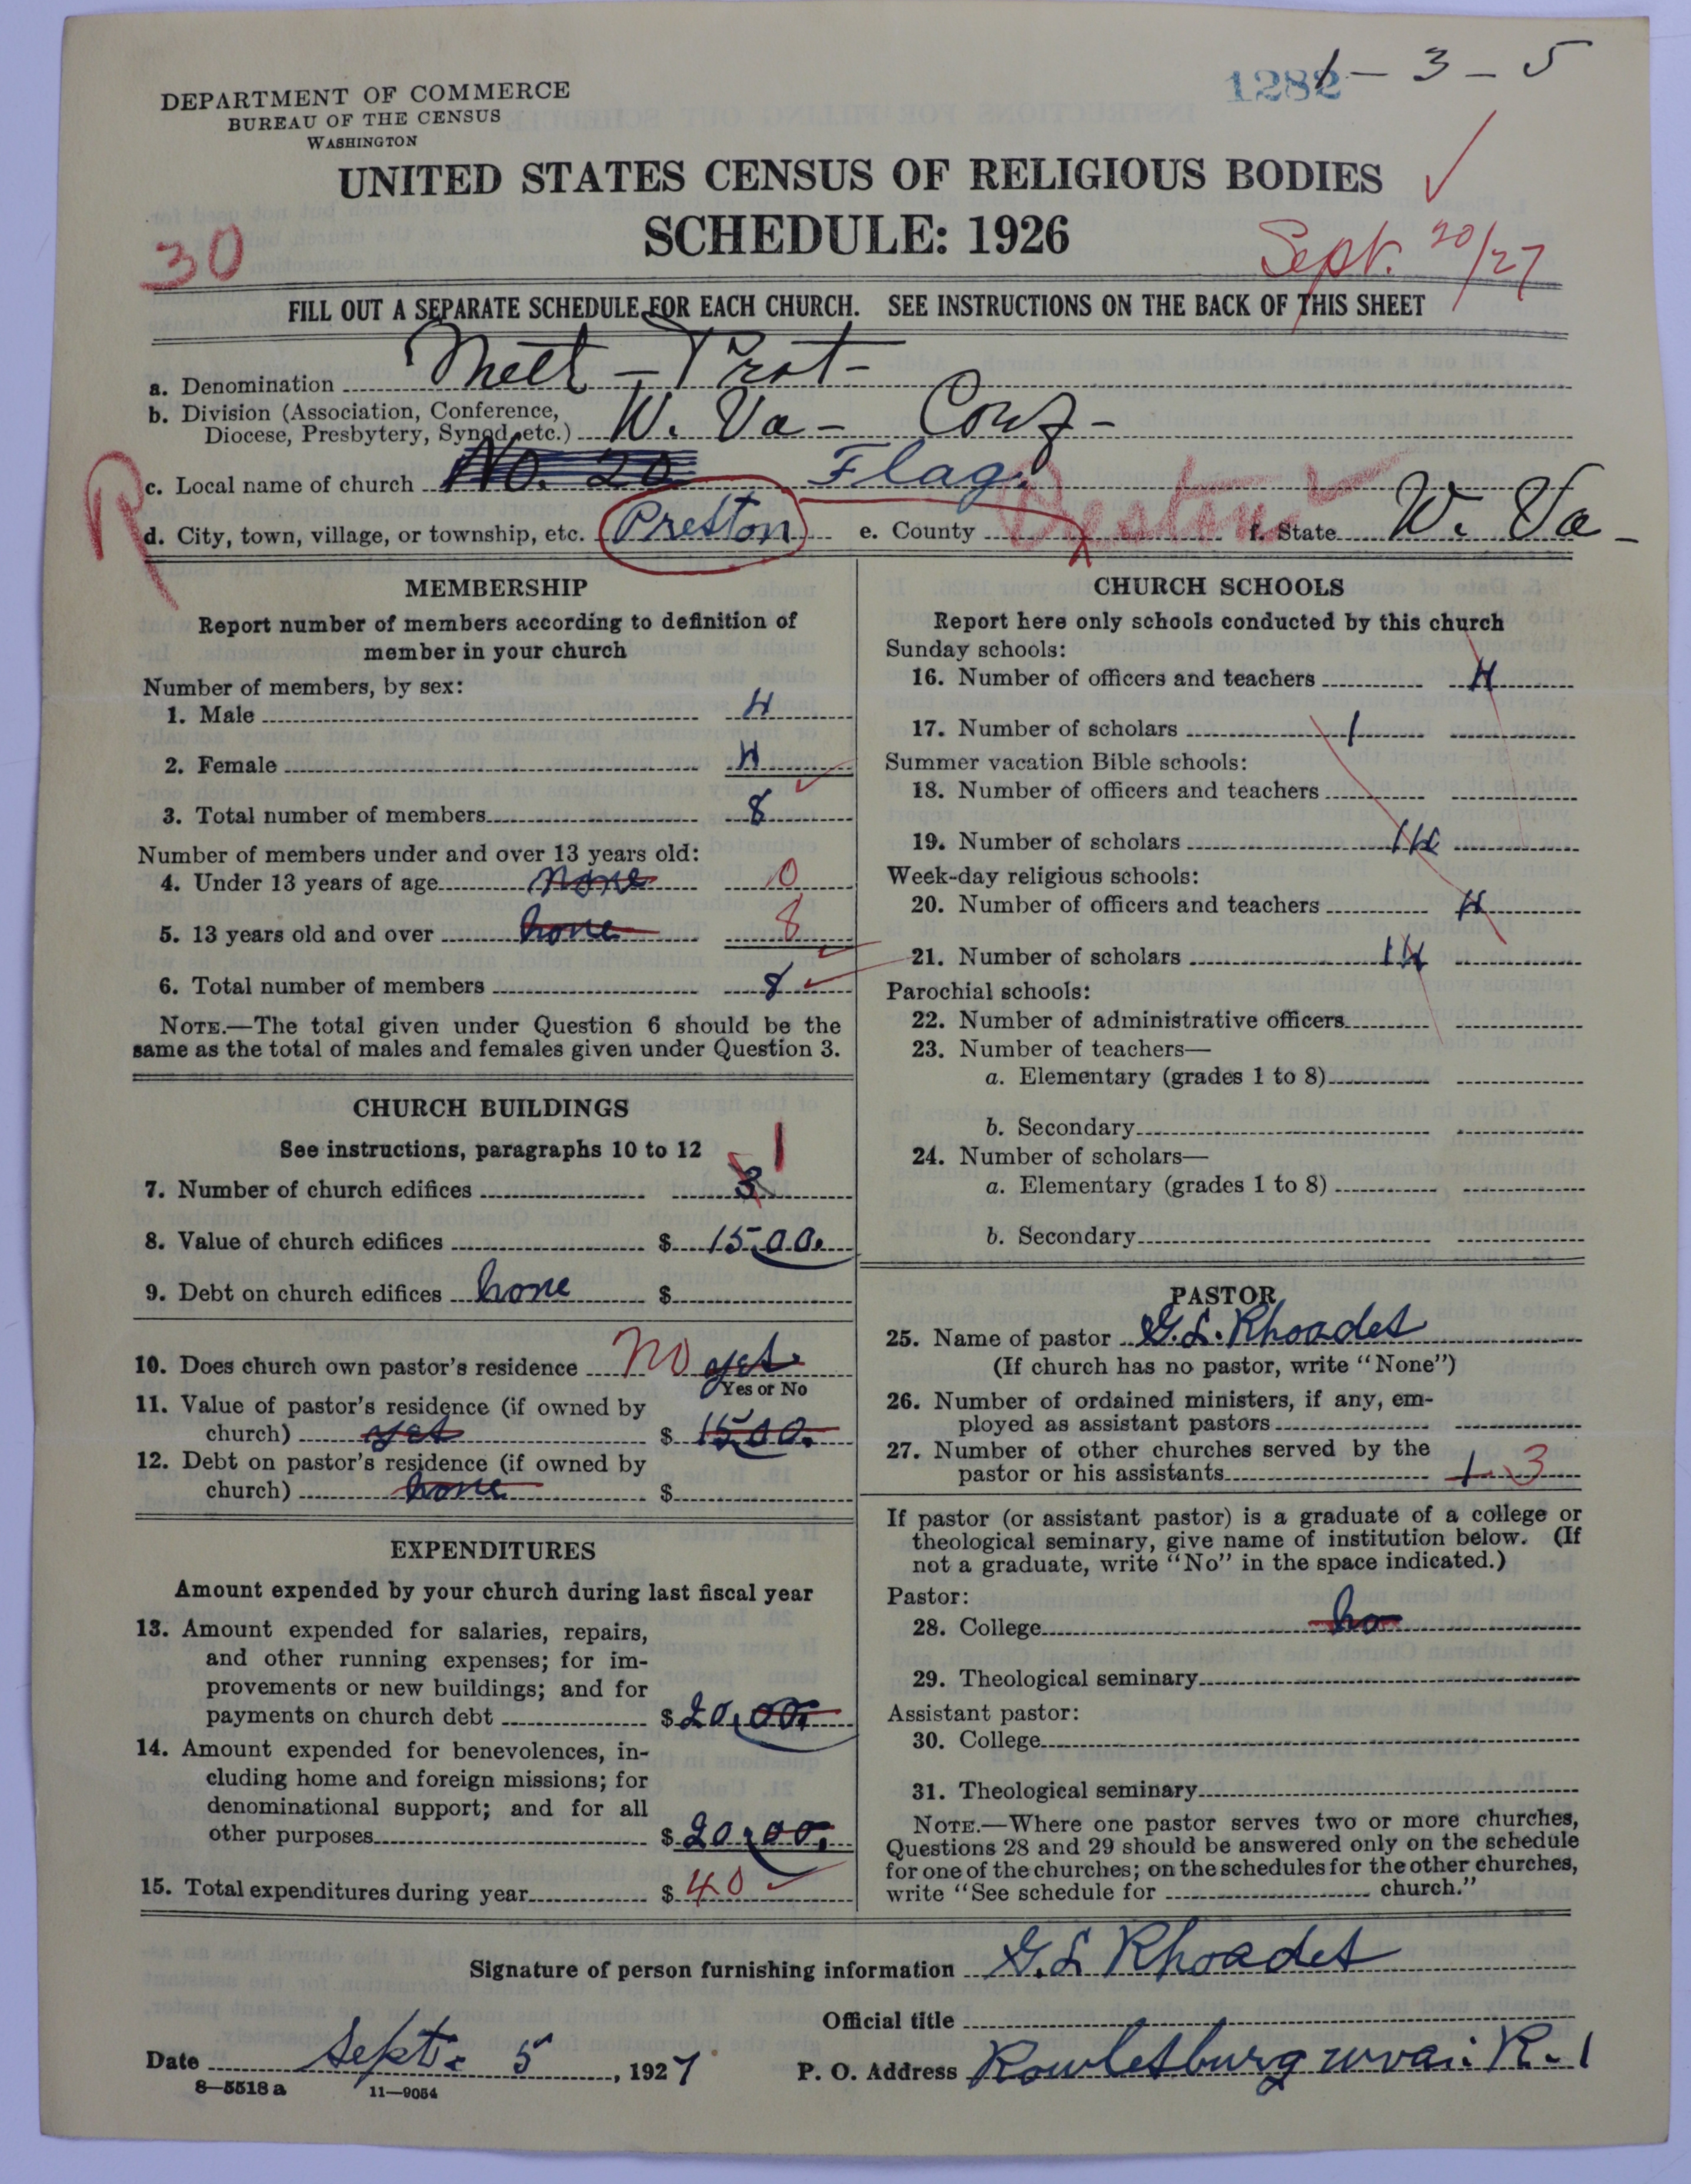 1282 1-3-5
DEPARTMENT OF COMMERCE
BUREAU OF THE CENSUS
WASHINGTON
UNITED STATES CENSUS OF RELIGIOUS BODIES
SCHEDULE: 1926
30
Sept. 20/27
FILL OUT A SEPARATE SCHEDULE FOR EACH CHURCH. SEE INSTRUCTIONS ON THE BACK OF THIS SHEET
a. Denomination Meth - Prot -
b. Division (Association, Conference,
Diocese, Presbytery, Synod, etc.) W. Va - Conf -
c. Local name of church No. 20 Flag.
R
d. City, town, village, or township, etc. Preston e. County Preston f. State W. Va -
MEMBERSHIP
Report number of members according to definition of
member in your church
Number of members, by sex:
1. Male 4
2. Female 4
3. Total number of members 8
Number of members under and over 13 years old:
4. Under 13 years of age none 0
5. 13 years old and over none 8
6. Total number of members 8
NOTE.—The total given under Question 6 should be the
same as the total of males and females given under Question 3.
CHURCH BUILDINGS
See instructions, paragraphs 10 to 12
7. Number of church edifices 3 1
8. Value of church edifices $ 15,00.
9. Debt on church edifices none $
10. Does church own pastor's residence no yes
Yes or No
11. Value of pastor's residence (if owned by
church) yes $ 1500.
12. Debt on pastor's residence (if owned by
church) none $
EXPENDITURES
Amount expended by your church during last fiscal year
13. Amount expended for salaries, repairs,
and other running expenses; for im-
provements or new buildings; and for
payments on church debt $ 20,00.
14. Amount expended for benevolences, in-
cluding home and foreign missions; for
denominational support; and for all
other purposes $ 20,00.
15. Total expenditures during year $ 40
CHURCH SCHOOLS
Report here only schools conducted by this church
Sunday schools:
16. Number of officers and teachers 4
17. Number of scholars 1
Summer vacation Bible schools:
18. Number of officers and teachers
19. Number of scholars 14
Week-day religious schools:
20. Number of officers and teachers 4
21. Number of scholars 14
Parochial schools:
22. Number of administrative officers
23. Number of teachers—
a. Elementary (grades 1 to 8)
b. Secondary
24. Number of scholars—
a. Elementary (grades 1 to 8)
b. Secondary
PASTOR
25. Name of pastor G. L. Rhoades
(If church has no pastor, write "None")
26. Number of ordained ministers, if any, em-
ployed as assistant pastors
27. Number of other churches served by the
pastor or his assistants 1 3
If pastor (or assistant pastor) is a graduate of a college or
theological seminary, give name of institution below. (If
not a graduate, write "No" in the space indicated.)
Pastor:
28. College no
29. Theological seminary
Assistant pastor:
30. College
31. Theological seminary
NOTE.—Where one pastor serves two or more churches,
Questions 28 and 29 should be answered only on the schedule
for one of the churches; on the schedules for the other churches,
write "See schedule for church."
Signature of person furnishing information G. L Rhoades
Official title
Date Sept. 5, 1927 P. O. Address Rowlesburg wva. R. 1
8—5518 a 11—9054